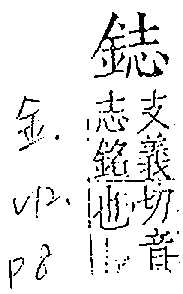 鋕
支義切音
志銘也
金.
V12.
P8